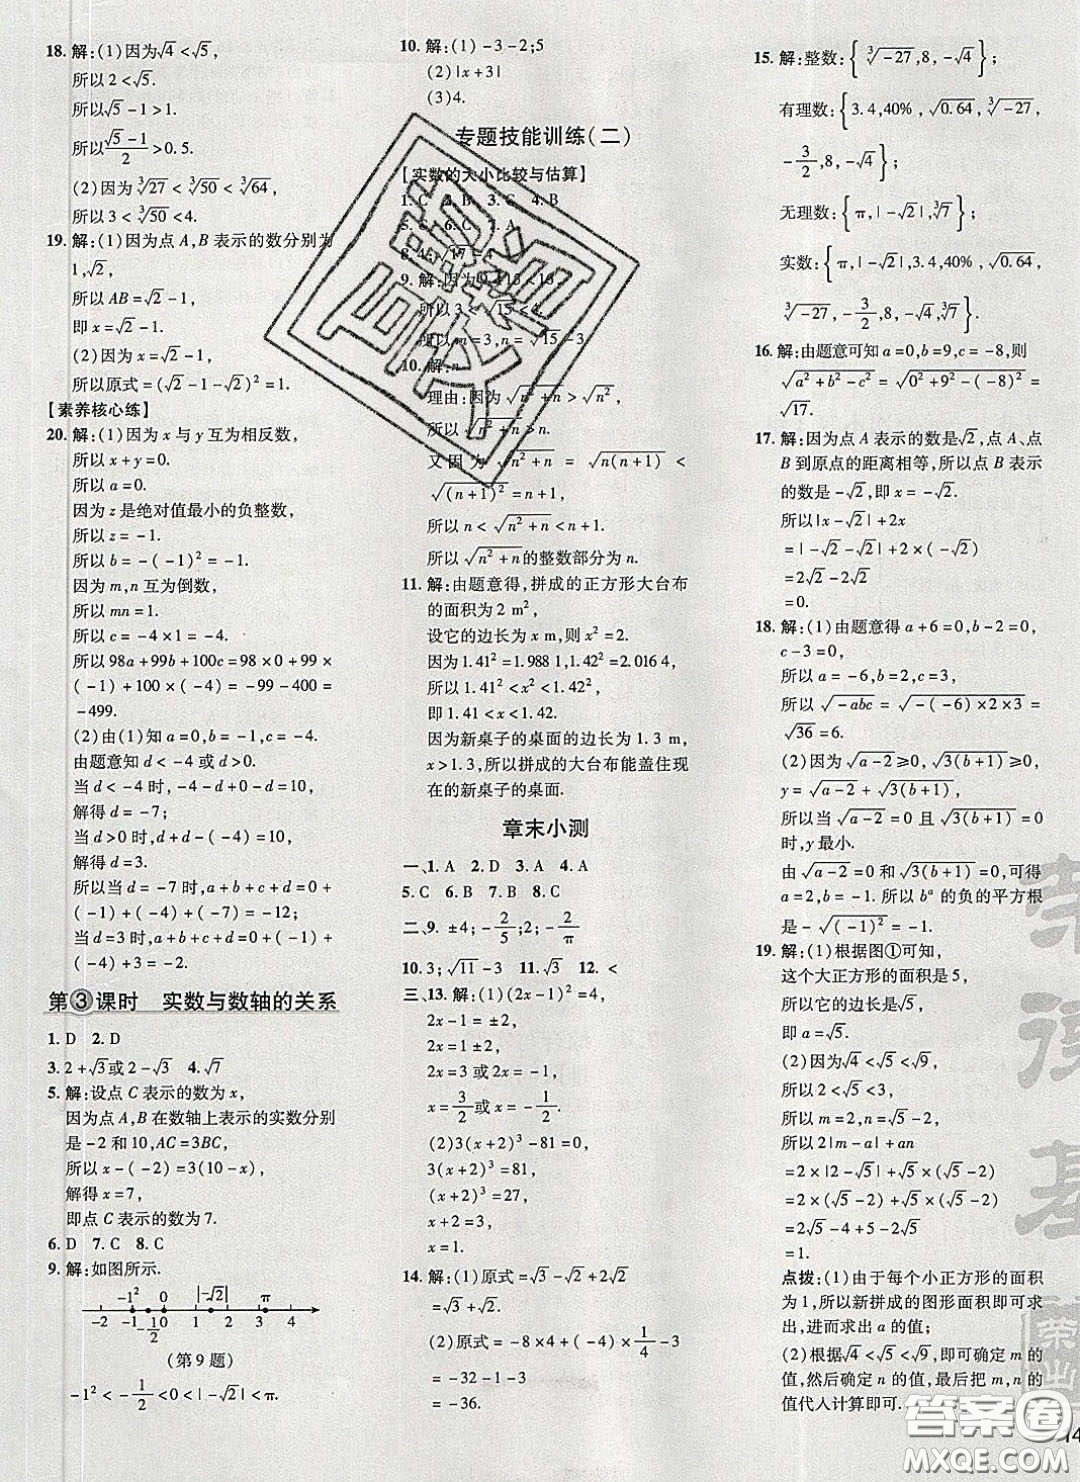 18. 解:(1)因为√4<√5,
所以 2<√5.
所以√5-1>1.
所以(√5-1)/2>0.5.
(2)因为∛27<∛50<∛64,
所以 3<∛50<4.
19. 解:(1)因为点 A,B 表示的数分别为
1,√2,
所以 AB=√2-1,
即 x=√2-1.
(2)因为 x=√2-1,
所以原式=(√2-1-√2)²=1.
【素养核心练】
20. 解:(1)因为 x 与 y 互为相反数,
所以 x+y=0.
所以 a=0.
因为 z 是绝对值最小的负整数,
所以 z=-1.
所以 b=-(-1)²=-1.
因为 m,n 互为倒数,
所以 mn=1.
所以 c=-4×1=-4.
所以 98a+99b+100c=0+99×
(-1)+100×(-4)=-99-400=
-499.
(2)由(1)知 a=0,b=-1,c=-4.
由题意知 d<-4或 d>0.
当 d<-4 时,-4-d+0-d=10,
解得 d=-7;
当 d>0 时,d+d-(-4)=10,
解得 d=3.
所以当 d=-7 时,a+b+c+d=0+
(-1)+(-4)+(-7)=-12;
当 d=3 时,a+b+c+d=0+(-1)+
(-4)+3=-2.
第③课时 实数与数轴的关系
1. D 2. D
3. 2+√3或 2-√3 4. √7
5. 解:设点 C 表示的数为 x,
因为点 A,B 在数轴上表示的实数分别
是-2 和 10,AC=3BC,
所以 x-(-2)=3(10-x),
解得 x=7,
即点 C 表示的数为 7.
6. D 7. C 8. C
9. 解:如图所示.
-1² 0 |-√2| π
-2 -1 -1/2 0 1 2 3 4
(第 9 题)
-1²<-1/2<0<|-√2|<π.
10. 解:(1)-3-2;5
(2)|x+3|
(3)4.
专题技能训练(二)
【实数的大小比较与估算】
1. C 2. B 3. C 4. B
5. C 6. C 7. A
8. 4;√17-4
9. 解:因为 9<15<16,
所以 3<√15<4.
所以 m=3,n=√15-3.
10. 解:n.
理由:因为√(n²+n)>√(n²),
所以√(n²+n)>n.
又因为√(n²+n)=√(n(n+1))<
√((n+1)²)=n+1,
所以 n<√(n²+n)<n+1.
所以√(n²+n)的整数部分为 n.
11. 解:由题意得,拼成的正方形大台布
的面积为 2 m²,
设它的边长为 x m,则 x²=2.
因为 1.41²=1.988 1,1.42²=2.016 4,
所以 1.41²<x²<1.42²,
即 1.41<x<1.42.
因为新桌子的桌面的边长为 1.3 m,
x>1.3,所以拼成的大台布能盖住现
在的新桌子的桌面.
章末小测
一、1. A 2. D 3. A 4. A
5. C 6. B 7. B 8. C
二、9. ±4;-2/5;2;-2/π
10. 3;√11-3 11. √3 12. <
三、13. 解:(1)(2x-1)²=4,
2x-1=±2,
2x=±2+1,
x=3/2 或 x=-1/2.
(2)3(x+2)³-81=0,
3(x+2)³=81,
(x+2)³=27,
x+2=3,
x=1.
14. 解:(1)原式=√3-√2+2√2
=√3+√2.
(2)原式=-8×4+(-4)×1/4-3
=-32-1-3
=-36.
15. 解:整数:{∛-27,8,-√4};
有理数:{3.4,40%,√0.64,∛-27,
-3/2,8,-√4};
无理数:{π,|-√2|,∛7};
实数:{π,|-√2|,3.4,40%,√0.64,
∛-27,-3/2,8,-√4,∛7}
16. 解:由题意可知 a=0,b=9,c=-8,则
√(a²+b²-c²)=√(0²+9²-(-8)²)=
√17.
17. 解:因为点 A 表示的数是√2,点 A、点
B 到原点的距离相等,所以点 B 表示
的数是-√2,即 x=-√2.
所以|x-√2|+2x
=|-√2-√2|+2×(-√2)
=2√2-2√2
=0.
18. 解:(1)由题意得 a+6=0,b-2=0,
c-3=0.
所以 a=-6,b=2,c=3,
所以 √-abc=√(-(-6)×2×3)=
√36=6.
(2)因为√(a-2)≥0,√(3(b+1))≥0,
y=√(a-2)+√(3(b+1)),
所以当√(a-2)=0 且√(3(b+1))=0
时,y 最小.
由√(a-2)=0 和√(3(b+1))=0,可得
a=2,b=-1. 所以 bᵃ 的负的平方根
是-√((-1)²)=-1.
19. 解:(1)根据图①可知,
这个大正方形的面积是 5,
所以它的边长是√5,
即 a=√5.
(2)因为√4<√5<√9,
所以 2<√5<3.
所以 m=2,n=√5-2.
所以 2|m-a|+an
=2×|2-√5|+√5×(√5-2)
=2×(√5-2)+5-2√5
=2√5-4+5-2√5
=1.
点拨:(1)由于每个小正方形的面积
为 1,所以新拼成的图形面积即可求
出,进而求出 a 的值;
(2)根据√4<√5<√9,即可确定 m 的
值,然后用 a-m 即为 n,最后把 m,n 的
值代人计算即可.
答案圈
MXQE.COM
14